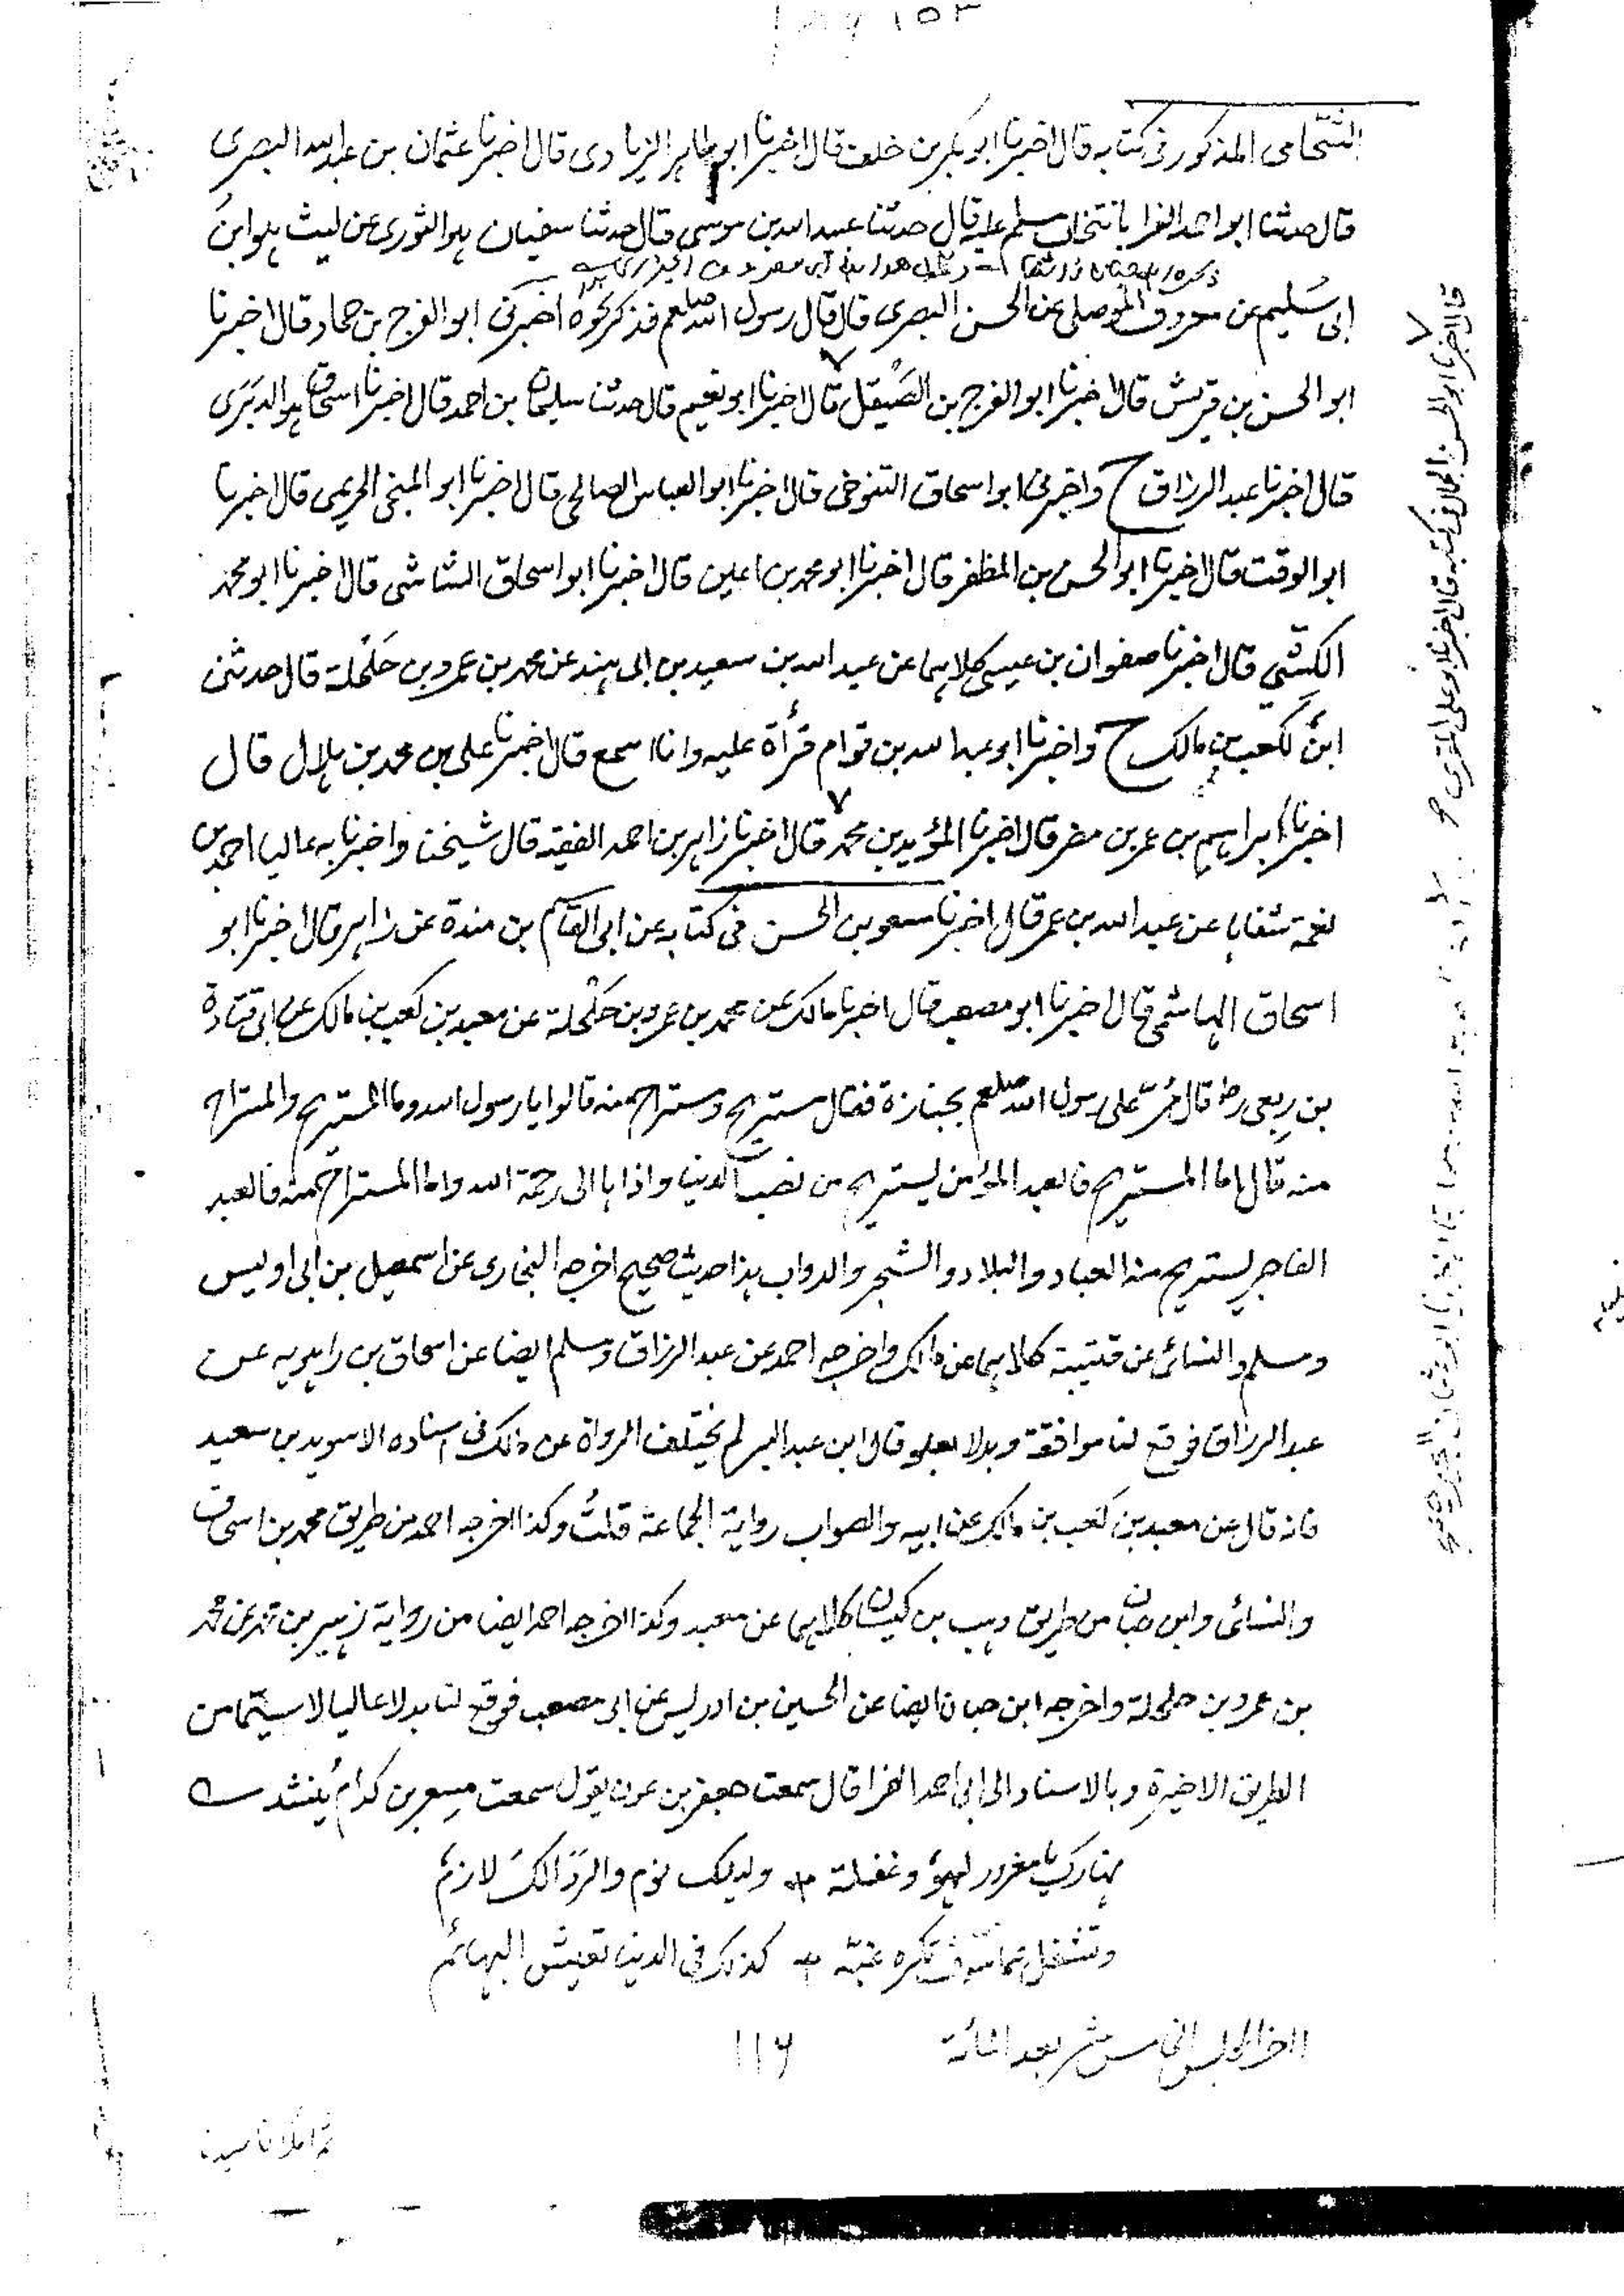 الشحامى المذكور فى كتابه قال اخبرنا ابو بكر بن خلف قال اخبرنا ابو طاهر الزيادى قال اخبرنا عثمان بن عبد الله البصرى
قال حدثنا ابو احمد الفرا بانتخاب مسلم عليه قال حدثنا عبيد الله بن موسى قال حدثنا سفيان هو الثورى عن ليث هو ابن
ابى سُليم عن معروف الموصلى عن الحسن البصرى قال قال رسول الله صلعم فذكر نحوه اخبرنى ابو الفرج بن حماد قال اخبرنا
ابو الحسن بن قريش قال اخبرنا ابو الفرج بن الصَّيقل قال اخبرنا ابو نعيم قال حدثنا سليمان بن احمد قال اخبرنا اسحاق هو الدبَرى
قال اخبرنا عبد الرزاق ح واخبرنى ابو اسحاق التنوخى قال اخبرنا ابو العباس الصالحى قال اخبرنا ابو المنجى الحريمى قال اخبرنا
ابو الوقت قال اخبرنا ابو الحسن بن المظفر قال اخبرنا ابو محمد بن اعين قال اخبرنا ابو اسحاق الشاشى قال اخبرنا ابو محمد
الكشّي قال اخبرنا صفوان بن عيسى كلاهما عن عبد الله بن سعيد بن ابى هند عن محمد بن عمرو بن حَلْحَلة قال حدثنى
ابنٌ لكعب بن مالك ح واخبرنا ابو عبد الله بن قوام قرأة عليه وانا اسمع قال اخبرنا على بن محمد بن هلال قال
اخبرنا ابراهيم بن عمر بن مضر قال اخبرنا المؤيد بن محمد قال اخبرنا زاهر بن احمد الفقيه قال شيخنا واخبرنا به عاليا احمد بن
نعمة شفاها عن عبد الله بن عمر قال اخبرنا مسعود بن الحسن فى كتابه عن ابى القاسم بن مندة عن زاهر قال اخبرنا ابو
اسحاق الهاشمى قال اخبرنا ابو مصعب قال اخبرنا مالك عن محمد بن عمرو بن حَلْحَلة عن معبد بن كعب بن مالك عن ابى قتادة
بن رِبعى رضـ قال مُرّ على رسول الله صلعم بجنازة فقال مستريح ومستراح منه قالوا يا رسول الله وما المستريح والمستراح
منه قال اما المستريح فالعبد المؤمن يستريح من نصب الدنيا واذاها الى رحمة الله واما المستراح منه فالعبد
الفاجر يستريح منه العباد والبلاد والشجر والدواب هذا حديث صحيح اخرجه البخارى عن اسمعيل بن ابى اويس
ومسلم والنسائى عن قتيبة كلاهما عن مالك واخرجه احمد عن عبد الرزاق ومسلم ايضا عن اسحاق بن راهويه عن
عبد الرزاق فوقع لنا موافقة وبدلا بعلو قال ابن عبد البر لم يختلف الرواة عن مالك فى اسناده الا سويد بن سعيد
فانه قال عن معبد بن كعب بن مالك عن ابيه والصواب رواية الجماعة قلتُ وكذا اخرجه احمد من طريق محمد بن اسحاق
والنسائى وابن حبان من طريق وهب بن كيسان كلاهما عن معبد وكذا اخرجه احمد ايضا من رواية زهير بن محمد عن محمد
بن عمرو بن حلحلة واخرجه ابن حبان ايضا عن الحسين بن ادريس عن ابى مصعب فوقع لنا بدلا عاليا لا سيّما من
الطريق الاخيرة وبالاسناد الى ابى احمد الفرا قال سمعت جعفر بن عون يقول سمعت مِسعر بن كدام يُنشد
نهارك يا مغرور لهوٌ وغفلة * وليلك نوم والردَا لكَ لازمٌ
وتشغل عما سوف تكره غبّه * كذلك فى الدنيا تعيش البهائم
اٰخر المجلس الخامس عشر بعد المائة ١١٦
قال اخبرنا ابو الحسن الجمال فى كتبه قال اخبرنا ابو على المقرى ح